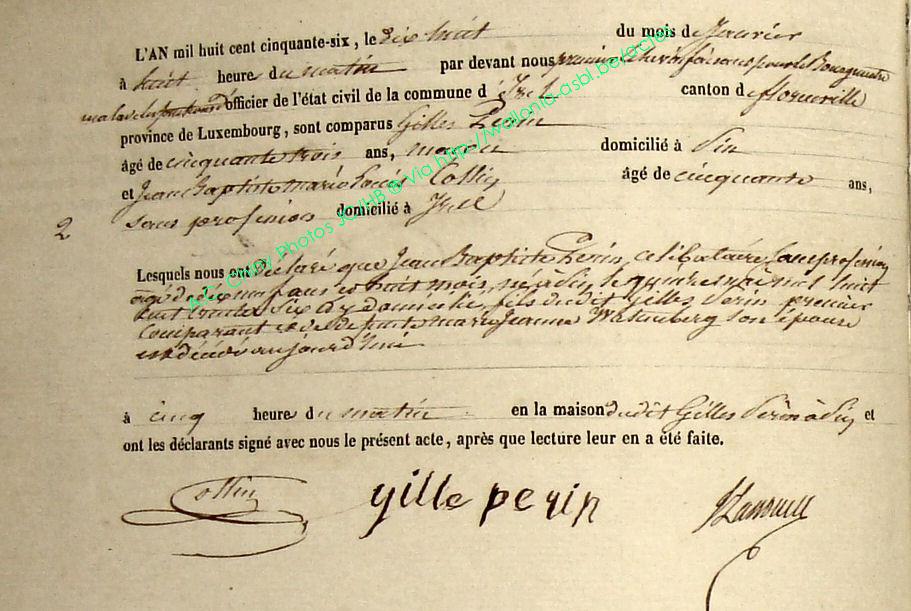 L'AN mil huit cent cinquante-six, le dix huit du mois de Janvier
à huit heure du matin par devant nous premier Echevin faisant pour le Bourgmestre
malade officier de l'état civil de la commune d'Izel canton de florenville
province de Luxembourg, sont comparus Gilles Perin
âgé de cinquante trois ans, domicilié à Pin
et Jean Baptiste marie Louis Collin âgé de cinquante ans,
2 sans profession domicilié à Izel
Lesquels nous ont déclaré que Jean Baptiste Perin, celibataire, sans profession
agé de ans et huit mois, né à Pin, le quinze mai mil huit
cent trente six y domicilié, fils du dit Gilles Perin premier
comparant et de marie Jeanne Watenberg son épouse
est décédé aujourd'hui
à cinq heure du matin en la maison du dit Gilles Perin à Pin et
ont les déclarants signé avec nous le présent acte, après que lecture leur en a été faite.
Collin gille perin
A.E. Photos JC/HB @ Via http://wallonia-asbl.be/actes